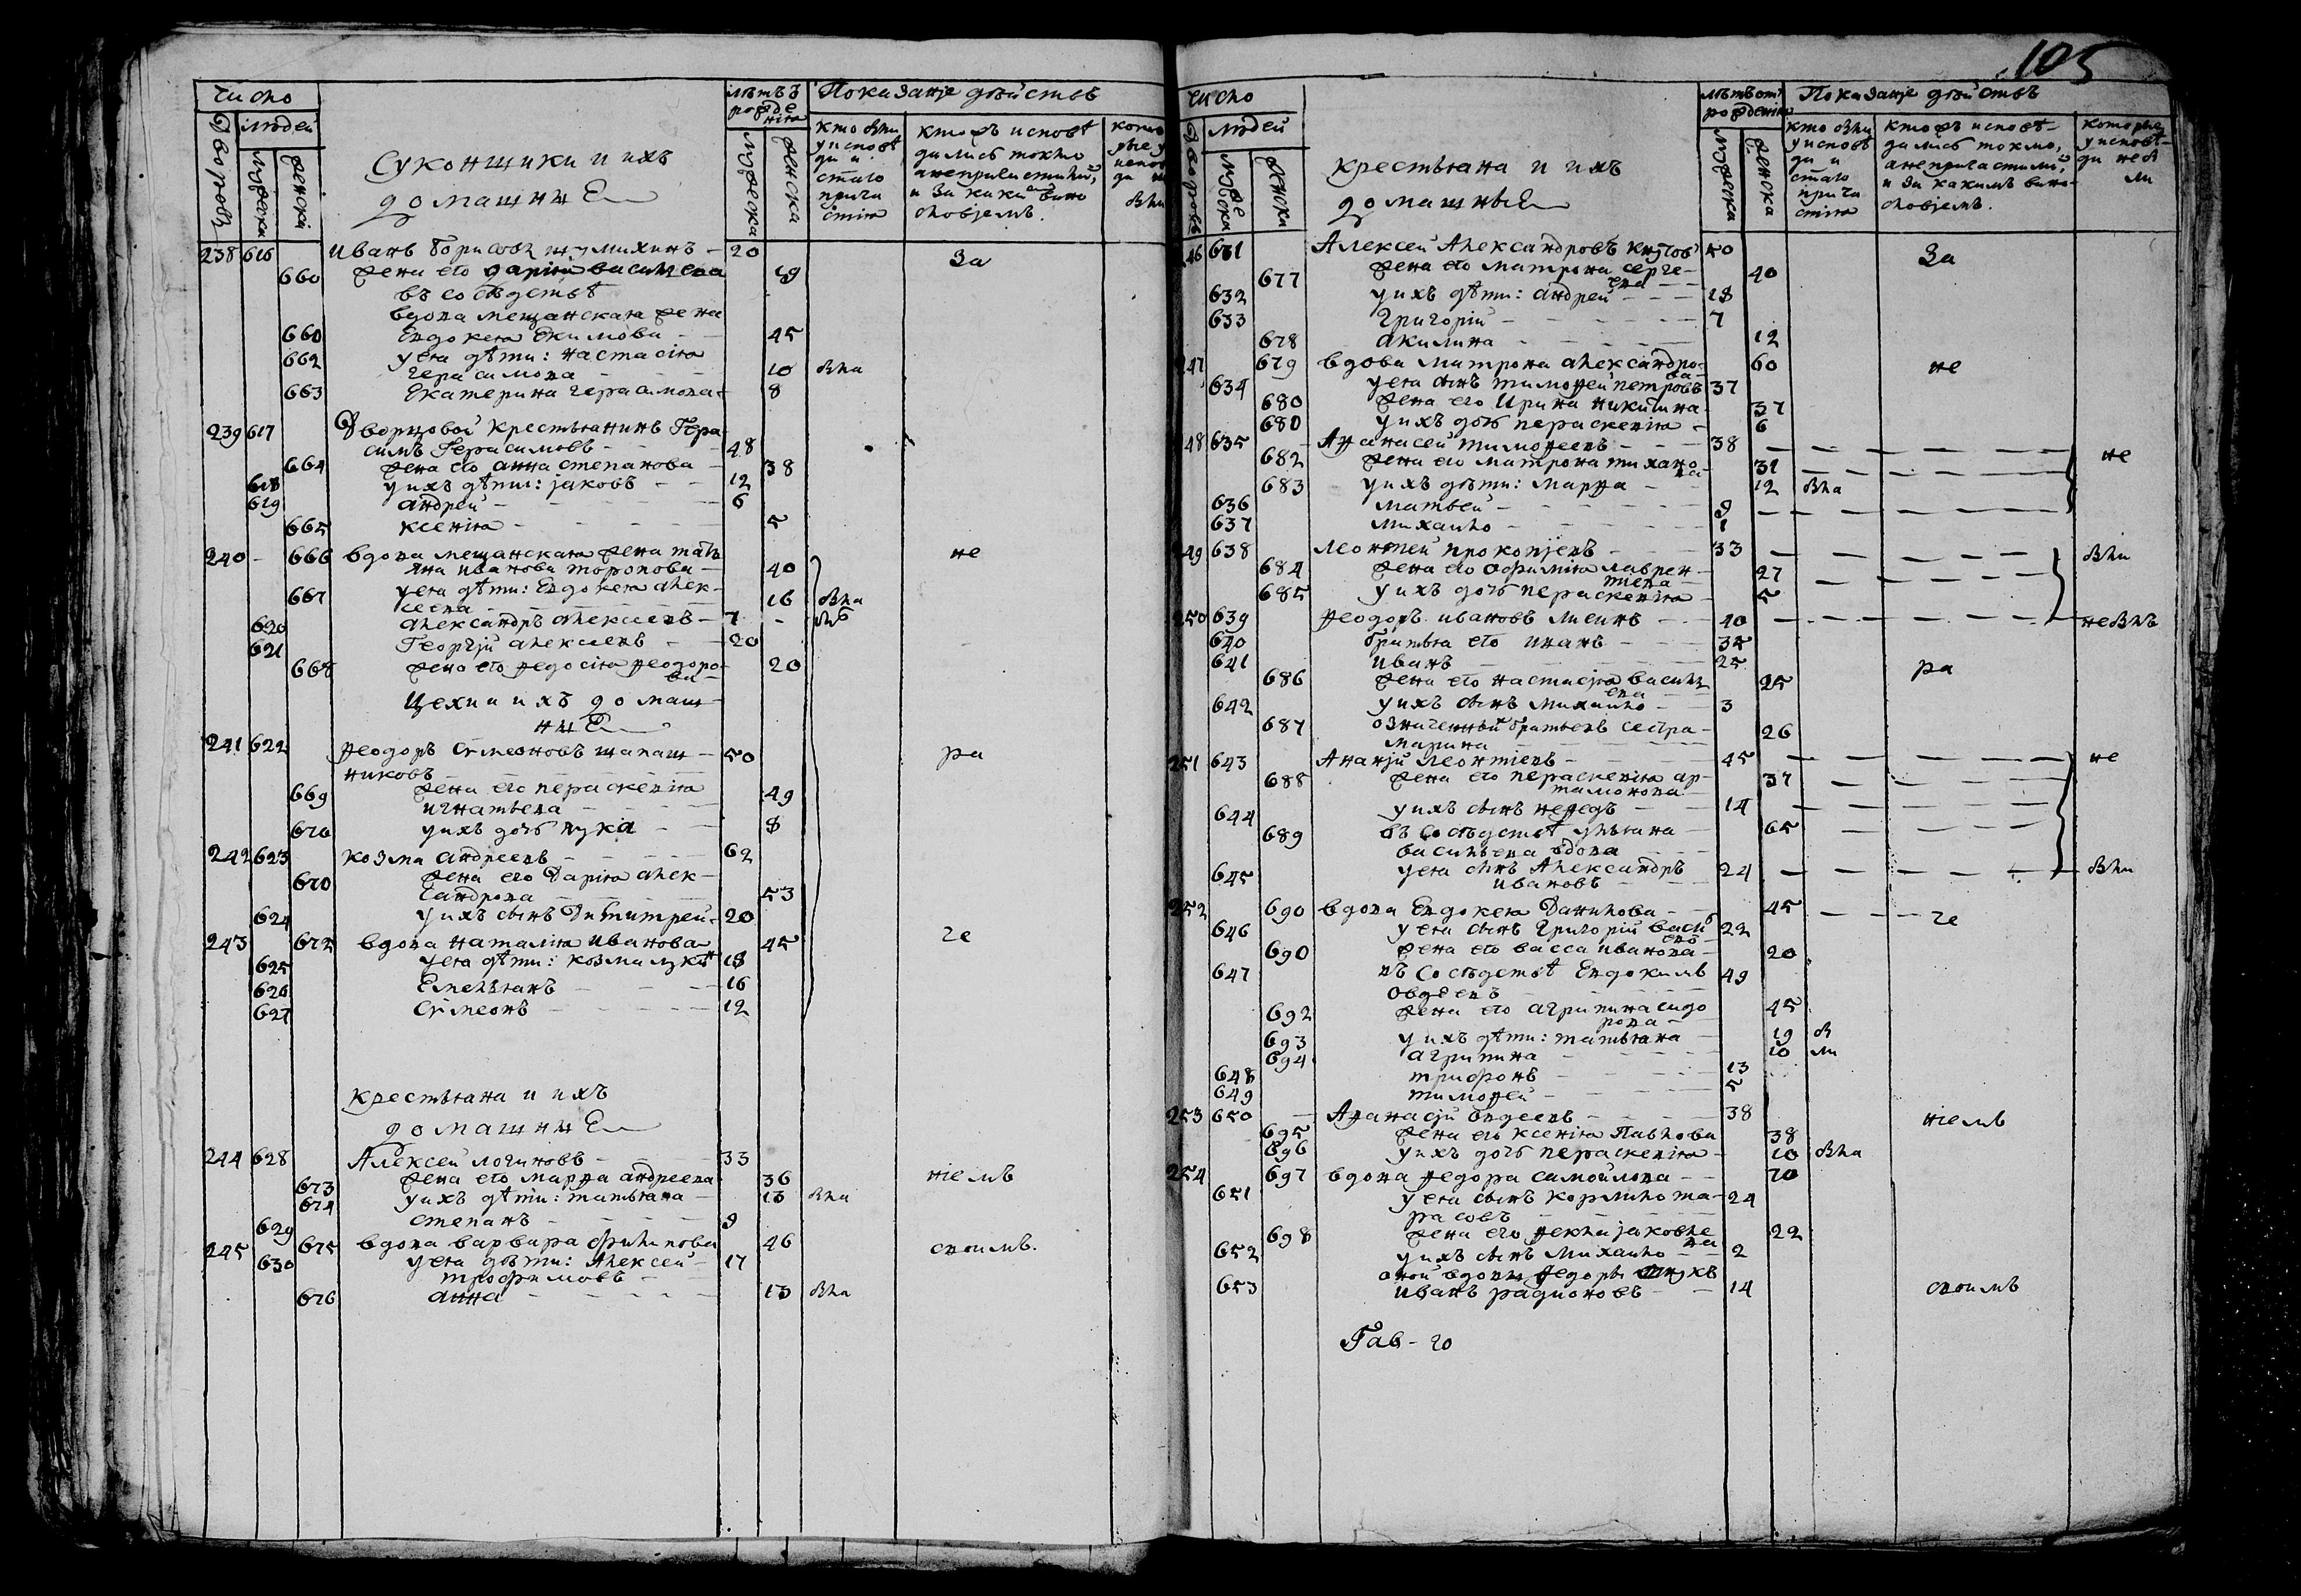 105
число
дворовъ
людей
мужеска
женска
Суконщики и ихъ
домашние
лѣтъ
рожде
нія
мужеска
женска
Показанїе дѣйствъ
кто были
у исповѣ
ди и
стаго
прича
стія
кто жъ исповѣ
дались токмо
а не причастили,
и за какимъ вино
словіемъ.
238 616 Иванъ Борисовъ 20
660 жена его Дарія Василева 19 За
въ соседствѣ
вдова мещанская жена
660 Евдокея Екимова 45
662 у нея дѣти: Настасія
Герасимова 10 была
663 Екатерина Герасимова 8
239 617 Дворцовой крестьянинъ Гера
симъ Герасимовъ 48
664 жена его Анна Степанова 38
618 у ихъ дѣти: Яковъ 12
619 Андрей 6
665 Ксенія 5
240 666 вдова мещанская жена Татья
яна Иванова Торопова 40 не
667 у нея дѣти: Евдокея Алек
сеева 16 была
620 Александръ Алексеевъ 7 былъ
621 Георгіи Алексеевъ 20
668 жена его Федосія Феодоро
ва 20
Цехи и ихъ домаш
ние
241 622 Феодоръ Симеоновъ Шапаш
никовъ 50 ра
669 жена его Пераскевія
Игнатьева 49
670 у ихъ дочь Лукиа 8
242 623 Козма Андреевъ 62
670 жена его Дарія Алек
сандрова 53
624 у ихъ сынъ Димитрей 20
243 672 вдова Наталія Иванова 45 че
625 у нея дѣти: Козма 18
626 Емельянъ 16
627 Симеонъ 12
крестьяна и ихъ
домашние
244 628 Алексей Логиновъ 33
673 жена его Марфа Андреева 36 ніемъ
674 у ихъ дѣти: Татьяна 13 была
629 Степанъ 9
245 675 вдова Варвара Филипова 46 своимъ.
630 у нея дѣти: Алексей 17
Трофимовъ
676 Анна 13 была
число
дворовъ
людей
мужеска
женска
крестьяна и ихъ
домашные
лѣтъ от
рожденія
мужеска
женска
Показанїе дѣйствъ
кто были
у исповѣ
ди и
стаго
прича
стія
кто жъ исповѣ
дались токмо,
а не причастили,
и за какимъ вино
словіемъ.
которые
у исповѣ
ди не б
ли
46 631 Алексеи Александровъ 50 За
677 жена его Матрона Серге
ева 40
632 у ихъ дѣти: Андрей 18
633 Григоріи 7
678 Акилина 12
47 679 вдова Матрона Александро
ва 60 не
634 у нея сынъ Тимофей Петровъ 37
680 жена его Ирина Никитина 37
680 у ихъ дочь Пераскевія 6
48 635 Афанасей Тимофеевъ 38 не
682 жена его Матрона Тихано
ва 31
683 у ихъ дѣти: Марфа 12 была
636 Матвей 9
637 Михаило 1
249 638 Леонтей Прокопіевъ 33 были
684 жена его Офимія Лаврен
тиева 27
685 у ихъ дочь Пераскевія 5
250 639 Феодоръ Ивановъ 40 не былъ
640 братья его Иванъ 35
641 Иванъ 25 ра
686 жена его Настасія Васил
ева 25
642 у ихъ сынъ Михаило 3
687 означенныя братьевъ сестра
Марина 26
251 643 Ананіи Леонтіевъ 45 не
688 жена его Пераскевія Ар
тамонова 37
644 у ихъ сынъ Нефедъ 14
689 въ соседствѣ Ульяна 65
Васильева вдова
645 у нея сынъ Александръ 24 были
Ивановъ
252 690 вдова Евдокея Данилова 45 че
646 у нея сынъ Григоріи Васи
евъ 22
690 жена его Васса Иванова 20
647 въ соседствѣ Евдокимъ 49
Овдеевъ
692 жена его Агрипина Сидо
рова 45
693 у ихъ дѣти: Татьяна 19 бы
694 Агрипина 10 ли
648 Трифонъ 13
649 Тимофей 5
253 650 Афанасіи Овдеевъ 38 ніемъ
695 жена его Ксенія Павлова 38
696 у ихъ дочь Пераскевія 10 была
254 697 вдова Федора Самоилова 70
651 у нея сынъ Кормило Та
расовъ 24
698 жена его Фекла Яковле
ва 22
652 у ихъ сынъ Михаило 2
оной вдовы Федоры внукъ
653 Иванъ Радионовъ 14 своимъ
Гав-го